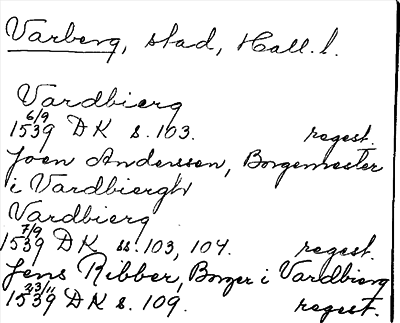 Varberg, stad, Hall. l.
Vardbierg
6/9
1539 DK s. 103. regest.
Joen Anderssen, Borgemester
i Vardbiergh
Vardbierg
7/9
1539 DK ss. 103, 104. regest.
Jens Ribber, Borger i Vardbierg
23/11
1539 DK s. 109. regest.